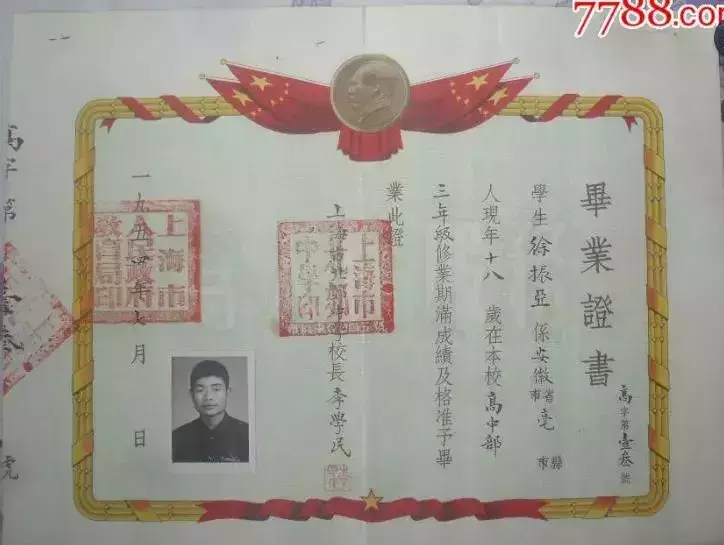 7788.com
畢業證書
高字第壹叁號
學生徐振亞係安徽省市亳縣市
人現年十八歲在本校高中部
三年級修業期滿成績及格准予畢
業此證
校長李學民
上海市
中學
一九五四年七月 日
上海市
教育局印
高字第
號